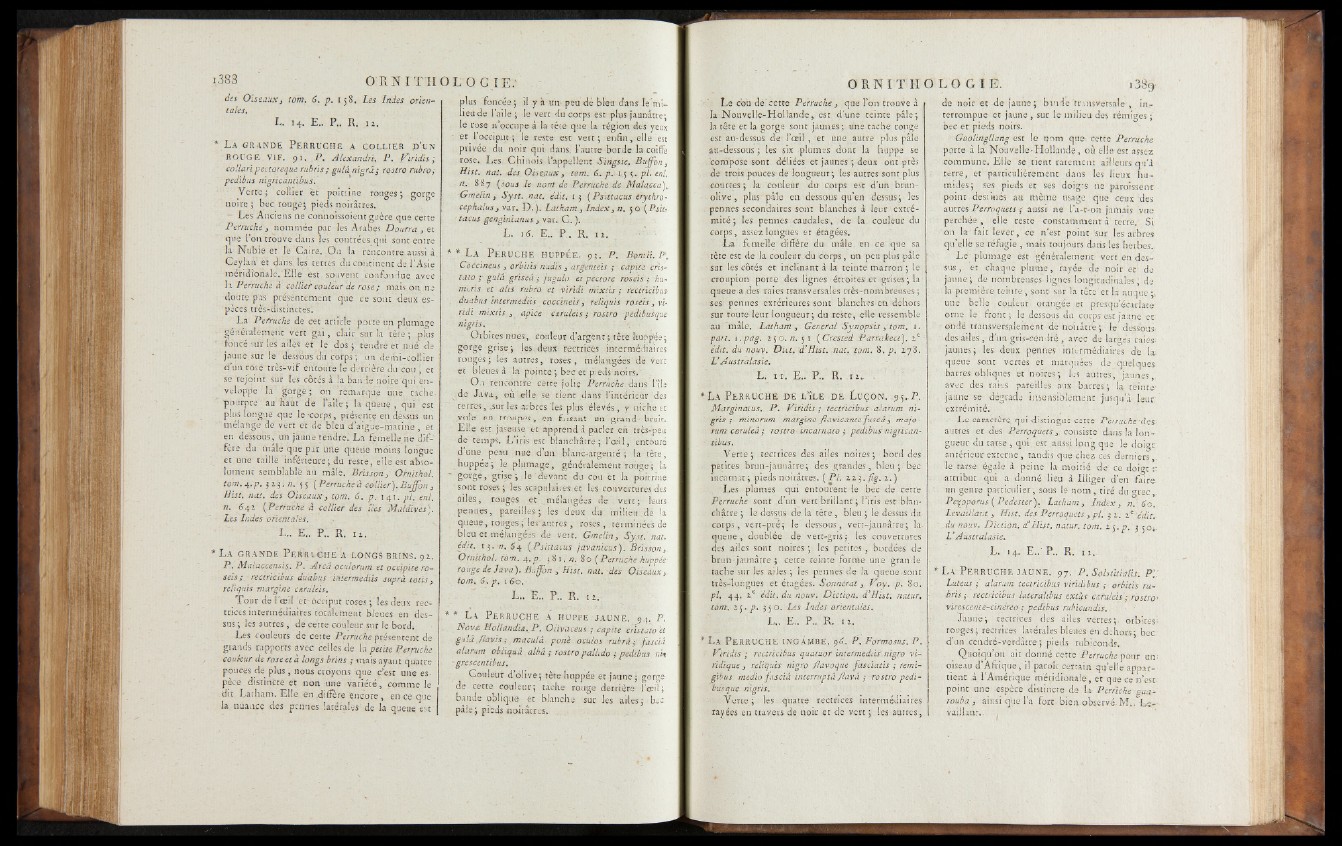 1388 ORNITHOLOGIE.
des Oiseaux, tom. 6. p. 158. Les Indes orien-
tales.
L. 14. E.. P.. R. 12.
* LA GRANDE PERRUCHE A COLLIER D'UN
ROUGE VIF. 91. P. Alexandri. P. Viridis;
collari pectoreque rubris; gulâ nigrâ; rostro rubro;
pedibus nigricantibus.
Verte; collier et poitrine rouges; gorge
noire; bec rouge; pieds noirâtres.
Les Anciens ne connoissoient guère que cette
Perruche, nommée par les Arabes Dourra, et
que l'on trouve dans les contrées qui sont entre
la Nubie et le Caire. On la rencontre aussi à
Ceylan et dans les terres du continent de l'Asie
méridionale. Elle est souvent confondue avec
la Perruche à collier couleur de rose; mais on ne
doute pas présentement que ce sont deux es-
pèces très-distinctes.
La Perruche de cet article porte un plumage
généralement vert gai, clair sur la tête; plus
foncé sur les ailes et le dos; tendre et nué de
jaune sur le dessous du corps; un demi-collier
d'un rose très-vif entoure le derrière du cou, et
se rejoint sur les côtés à la bande noire qui en-
veloppe la gorge; on remarque une tache
pourpre au haut de l'aile; la queue, qui est
plus longue que le corps, présente en dessus un
mélange de vert et de bleu d'aigue-marine, et
en dessous, un jaune tendre. La femelle ne dif-
fère du mâle que par une queue moins longue
et une taille inférieure; du reste, elle est abso-
lument semblable au mâle. Brisson, Ornithol.
tom. 4. p. 323. n. 55 (Perruche à collier). Buffon,
Hist. nat. des Oiseaux, tom. 6. p. 141. pl. enl.
n. 642 (Perruche à collier des îles Maldives).
Les Indes orientales.
L.. E.. P.. R. 12.
* LA GRANDE PERRUCHE A LONGS BRINS. 92.
P. Malaccensis. P. Areâ oculorum et occipite ro-
seis; rectricibus duabus intermediis suprà totis,
reliquis margine caruleis.
Tour de l'œil et occiput roses; les deux rec-
trices intermédiaires totalement bleues en des-
sus; les autres, de cette couleur sur le bord.
Les couleurs de cette Perruche présentent de
grands rapports avec celles de la petite Perruche
couleur de rose et à longs brins; mais ayant quatre
pouces de plus, nous croyons que c'est une es-
pèce distincte et non une variété, comme le
dit Latham. Elle en diffère encore, en ce que
la nuance des pennes latérales de la queue est
plus foncée; il y a un peu de bleu dans le mi-
lieu de l'aile; le vert du corps est plus jaunâtre;
le rose n'occupe à la tête que la région des yeux
et l'occiput; le reste est vert; enfin, elle est
privée du noir qui dans l'autre borde la coiffe
rose. Les Chinois l'appellent Singsie. Buffon,
Hist. nat. des Oiseaux, tom. 6. p. 155. pl. enl.
n. 887 (sous le nom de Perruche de Malacca).
Gmelin, Syst. nat. édit. 13 (Psittacus erythro-
cephalus, var. D.). Latham, Index, n. 50 (Psit-
tacus genginianus, var. C.).
L. 16. E.. P. R. 12.
** LA PERRUCHE HUPPÉE. 93. P. Bontii. P.
Coccineus, orbitis nudis, argenteis; capite cris-
tato; gulâ griseâ; jugulo et pectore roseis; hu-
meris et alis rubro et viridi mixtis; rectricibus
duabus intermediis coccineis, reliquis roseis, vi-
ridi mixtis, apice caruleis; rostro pedibusque
nigris.
Orbites nues, couleur d'argent; tête huppée;
gorge grise; les deux rectrices intermédiaires
rouges; les autres, roses, mélangées de vert
et bleues à la pointe; bec et pieds noirs.
On rencontre cette jolie Perruche dans l'île
de Java, où elle se tient dans l'intérieur des
terres, sur les arbres les plus élevés, y niche et
vole en troupes, en faisant un grand bruit.
Elle est jaseuse et apprend à parler en très-peu
de temps. L'iris est blanchâtre; l'œil, entouré
d'une peau nue d'un blanc-argenté; la tête,
huppée; le plumage, généralement rouge; la
gorge, grise; le devant du cou et la poitrine
sont roses; les scapulaires et les couvertures des
ailes, rouges et mélangées de vert; leurs
pennes, pareilles; les deux du milieu de la
queue, rouges; les autres, roses, terminées de
bleu et mélangées de vert. Gmelin, Syst. nat.
édit. 13. n. 64 (Psittacus javanicus). Brisson,
Ornithol. tom. 4. p. 381. n. 80 (Perruche huppée
rouge de Java). Buffon, Hist. nat. des Oiseaux,
tom. 6. p. 160.
L.. E.. P.. R. 12.
** LA PERRUCHE A HUPPE JAUNE. 94. P.
Novæ Hollandiæ. P. Olivaceus; capite cristato et
gulâ flavis; maculâ ponè oculos rubrâ; fasciâ
alarum obliquâ albâ; rostro pallido; pedibus ni-
grescentibus.
Couleur d'olive; tête huppée et jaune; gorge
de cette couleur; tache rouge derrière l'œil;
bande oblique et blanche sur les ailes; bec
pâle; pieds noirâtres.
ORNITHOLOGIE. 1389
Le cou de cette Perruche, que l'on trouve à
la Nouvelle-Hollande, est d'une teinte pâle;
la tête et la gorge sont jaunes; une tache rouge
est au-dessous de l'œil, et une autre plus pâle
au-dessous; les six plumes dont la huppe se
compose sont déliées et jaunes; deux ont près
de trois pouces de longueur; les autres sont plus
courtes; la couleur du corps est d'un brun-
olive, plus pâle en dessous qu'en dessus; les
pennes secondaires sont blanches à leur extré-
mité; les pennes caudales, de la couleur du
corps, assez longues et étagées.
La femelle diffère du mâle en ce que sa
tête est de la couleur du corps, un peu plus pâle
sur les côtés et inclinant à la teinte marron; le
croupion porte des lignes étroites et grises; la
queue a des raies transversales très-nombreuses;
ses pennes extérieures sont blanches en dehors
sur toute leur longueur; du reste, elle ressemble
au mâle. Latham, General Synopsis, tom. 1.
part. 1. pag. 250. n. 51 (Crested Parrakeet). 2e
édit. du nouv. Dict. d'Hist. nat. tom. 8. p. 278.
L'Australasie.
L. 11. E.. P.. R. 12.
* LA PERRUCHE DE L'ÎLE DE LUÇON. 95. P.
Marginatus. P. Viridis; tectricibus alarum ni-
gris; minorum margine flavicante fuscâ, majo-
rum caruleâ; rostro incarnato; pedibus nigrican-
tibus.
Verte; tectrices des ailes noires; bord des
petites brun-jaunâtre; des grandes, bleu; bec
incarnat; pieds noirâtres. (Pl. 223. fig. 2.)
Les plumes qui entourent le bec de cette
Perruche sont d'un vert brillant; l'iris est blan-
châtre; le dessus de la tête, bleu; le dessus du
corps, vert-pré; le dessous, vert-jaunâtre; la
queue, doublée de vert-gris; les couvertures
des ailes sont noires; les petites, bordées de
brun-jaunâtre; cette teinte forme une grande
tache sur les ailes; les pennes de la queue sont
très-longues et étagées. Sonnerat, Voy. p. 80.
pl. 44. 2e édit. du nouv. Diction. d'Hist. natur.
tom. 25. p. 350. Les Indes orientales.
L.. E.. P.. R. 12.
* LA PERRUCHE INGAMBE. 96. P. Formosus. P.
Viridis; rectricibus quatuor intermediis nigro vi-
ridique, reliquis nigro flavoque fasciatis; remi-
gibus medio fasciâ interruptâ flavâ; rostro pedi-
busque nigris.
Verte; les quatre rectrices intermédiaires
rayées en travers de noir et de vert; les autres,
de noir et de jaune; bande transversale, in-
terrompue et jaune, sur le milieu des rémiges;
bec et pieds noirs.
Goolingllang est le nom que cette Perruche
porte à la Nouvelle-Hollande, où elle est assez
commune. Elle se tient rarement ailleurs qu'à
terre, et particulièrement dans les lieux hu-
mides; ses pieds et ses doigts ne paroissent
point destinés au même usage que ceux des
autres Perroquets; aussi ne l'a-t-on jamais vue
perchée, elle reste constamment à terre. Si
on la fait lever, ce n'est point sur les arbres
qu'elle se réfugie, mais toujours dans les herbes.
Le plumage est généralement vert en des-
sus, et chaque plume, rayée de noir et de
jaune; de nombreuses lignes longitudinales, de
la première teinte, sont sur la tête et la nuque;
une belle couleur orangée et presqu'écarlate
orne le front; le dessous du corps est jaune et
ondé transversalement de noirâtre; le dessous
des ailes, d'un gris-cendré, avec de larges raies
jaunes; les deux pennes intermédiaires de la
queue sont vertes et marquées de quelques
barres obliques et noires; les autres, jaunes,
avec des raies pareilles aux barres; la teinte
jaune se dégrade insensiblement jusqu'à leur
extrémité.
Le caractère qui distingue cette Perruche des
autres et des Perroquets, consiste dans la lon-
gueur du tarse, qui est aussi long que le doigt
antérieur externe, tandis que chez ces derniers,
le tarse égale à peine la moitié de ce doigt:
attribut qui a donné lieu à Illiger d'en faire
un genre particulier, sous le nom, tiré du grec,
Pezoporus (Pedester). Latham, Index, n. 60.
Levaillant, Hist. des Perroquets, pl. 32. 2e édit.
du nouv. Diction. d'Hist. natur. tom. 25. p. 350.
L'Australasie.
L. 14. E.. P.. R. 12.
* LA PERRUCHE JAUNE. 97. P. Solstitialis. P.
Luteus; alarum tectricibus viridibus; orbitis ru-
bris; rectricibus lateralibus extùs caruleis; rostro
virescente-cinereo; pedibus rubicundis.
Jaune; tectrices des ailes vertes; orbites
rouges; rectrices latérales bleues en dehors; bec
d'un cendré-verdâtre; pieds rubiconds.
Quoiqu'on ait donné cette Perruche pour un
oiseau d'Afrique, il paroît certain qu'elle appar-
tient à l'Amérique méridionale, et que ce n'est
point une espèce distincte de la Perriche gua-
rouba, ainsi que l'a fort bien observé M. Le-
vaillant.